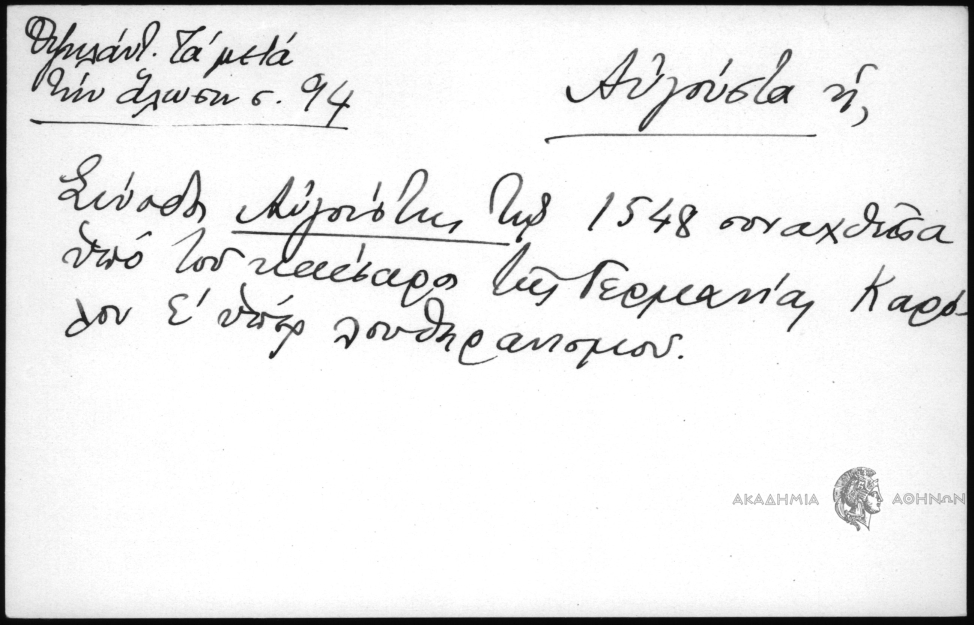 Ὑψηλάντ. Τά μετά
τήν ἅλωσιν σ. 94
Αὐγούστα ἡ,
Σύνοδος Αὐγούστης τῷ 1548 συναχθεῖσα
ὑπό τοῦ καίσαρος τῆς Γερμανίας Καρό-
λου Ε' ὑπέρ λουθηρανισμοῦ.
ΑΚΑΔΗΜΙΑ ΑΘΗΝΩΝ